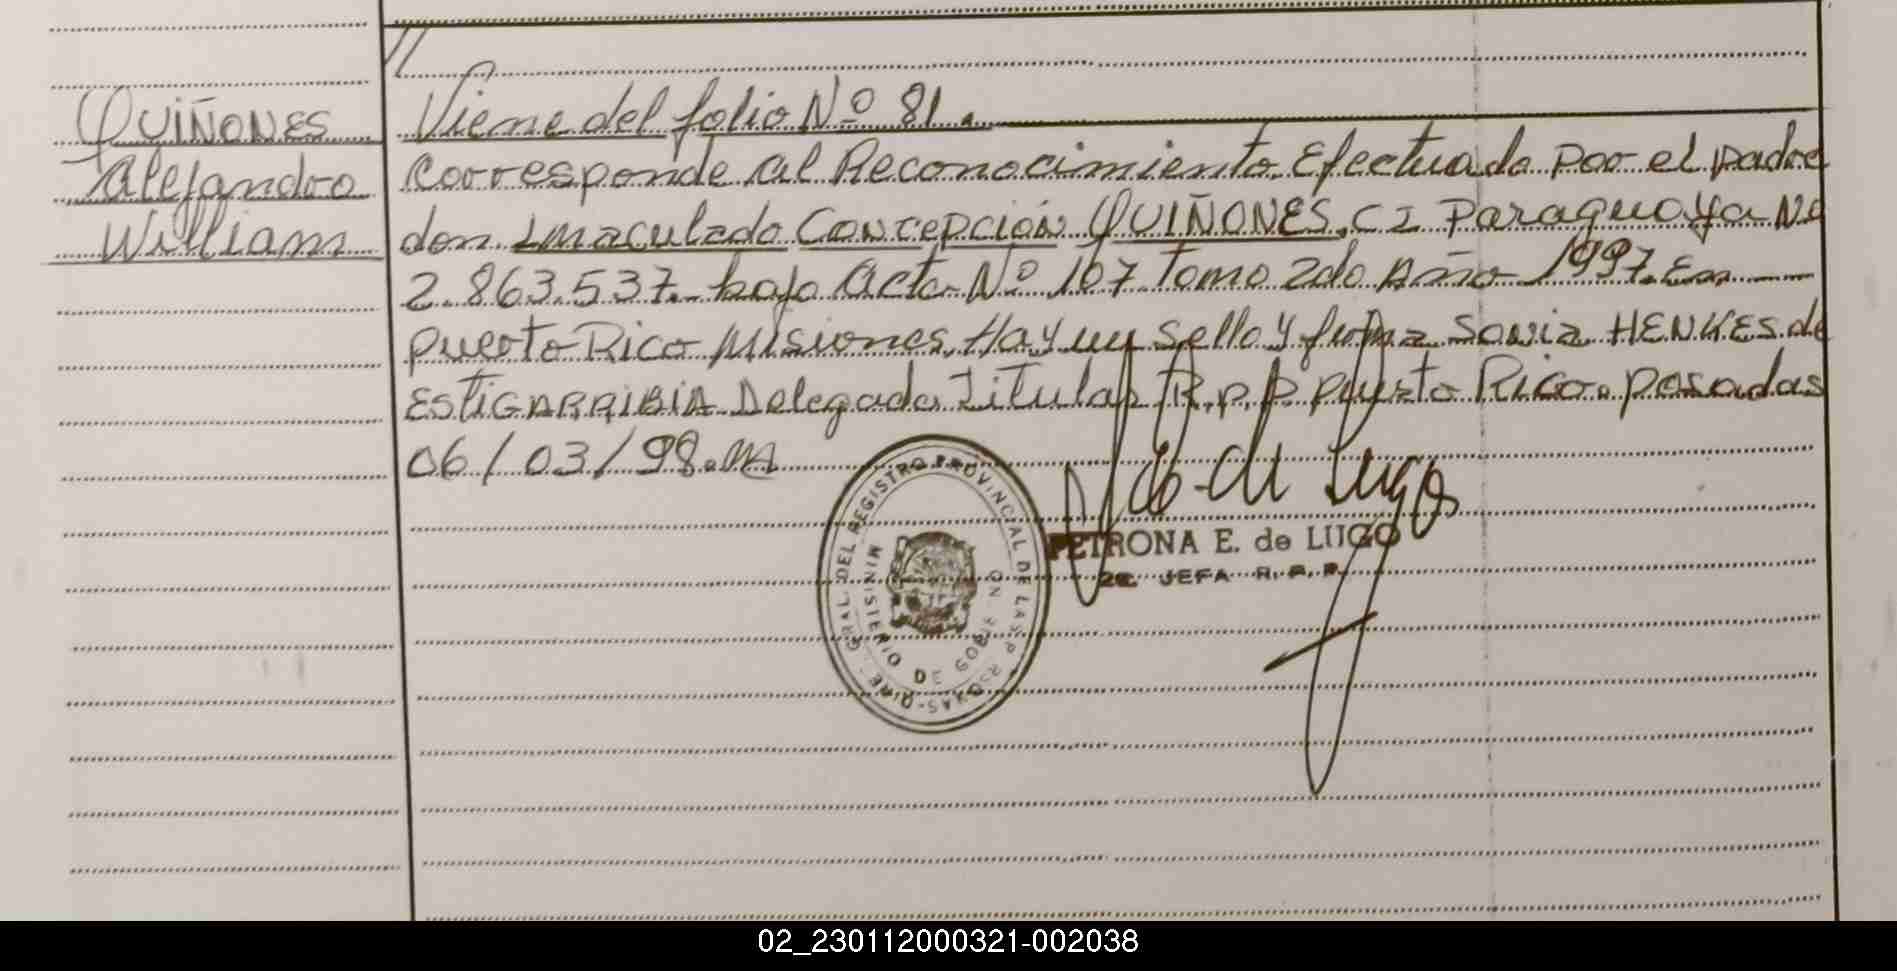 //
QUIÑONES
Alejandro
William
Viene del folio Nº 81.
Corresponde al Reconocimiento Efectuado por el padre
don Imaculado Concepción QUIÑONES, C I Paraguaya Nº
2.863.537. bajo Acta Nº 107 Tomo 2do Año 1997. En
puerto Rico Misiones. Hay un sello y firma Sonia HENKES de
ESTIGARRIBIA Delegada Titular R.p.p. puerto Rico. posadas
06/03/98.
DIRE. GRAL. DEL REGISTRO PROVINCIAL DE LAS P
MINISTERIO DE GOB
PETRONA E. de LUGO
JEFA R.P.P.
02_230112000321-002038